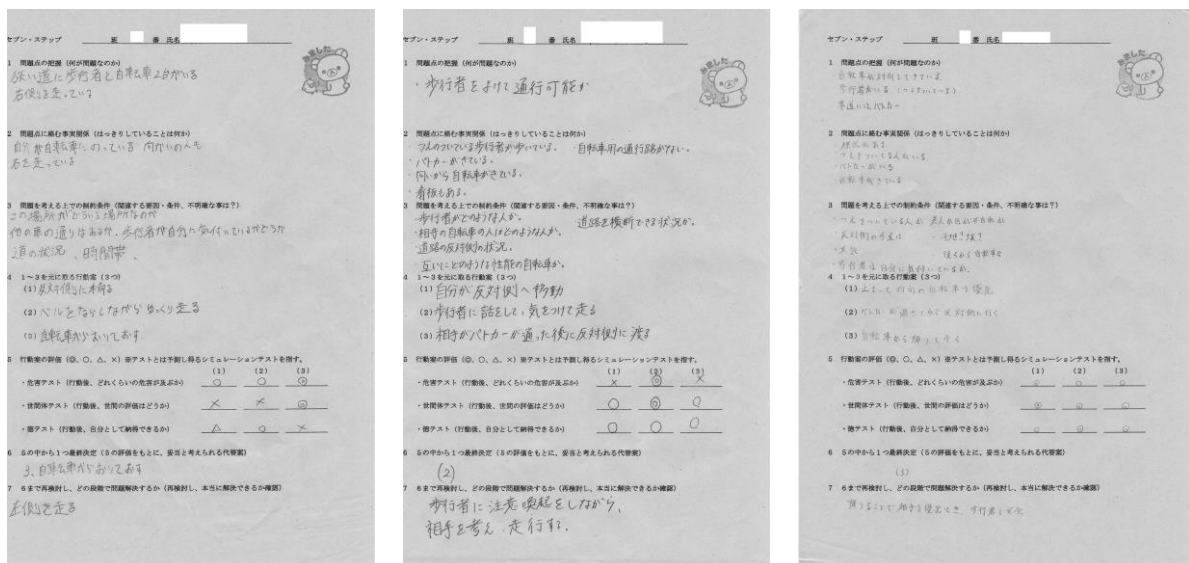 セブン・ステップ 班 番 氏名
みました
1 問題点の把握（何が問題なのか）
狭い道に歩行者と自転車2台がいる
右側を走っている
2 問題点に絡む事実関係（はっきりしていることは何か）
自分が自転車にのっている 向かいの人も
右を走っている
3 問題を考える上での制約条件（関連する要因・条件、不明確な事は？）
この場所がどういう場所なのか
他の車の通りはあるか、歩行者が自分に気付いているかどうか
道の状況、時間帯、
4 1～3を元に取る行動案（3つ）
(1) 反対側に移る
(2) ベルをならしながらゆっくり走る
(3) 自転車からおりておす
5 行動案の評価（◎、○、△、×）※テストとは予測し得るシミュレーションテストを指す。
(1) (2) (3)
・危害テスト（行動後、どれくらいの危害が及ぶか） ○ ○ ◎
・世間体テスト（行動後、世間の評価はどうか） × × ◎
・徳テスト（行動後、自分として納得できるか） △ ○ ×
6 5の中から1つ最終決定（5の評価をもとに、妥当と考えられる代替案）
3、自転車からおりておす
7 6まで再検討し、どの段階で問題解決するか（再検討、本当に解決できるか確認）
左側を走る
セブン・ステップ 班 番 氏名
みました
1 問題点の把握（何が問題なのか）
・歩行者をよけて通行可能か
2 問題点に絡む事実関係（はっきりしていることは何か）
・つえのついている歩行者が歩いている。 ・自転車用の通行路がない。
・パトカーがきている。
・向いから自転車がきている。
・看板もある。
3 問題を考える上での制約条件（関連する要因・条件、不明確な事は？）
・歩行者がどのような人か。 ・道路を横断できる状況か。
・相手の自転車の人はどのような人か。
・道路の反対側の状況。
・互いにどのような性能の自転車か。
4 1～3を元に取る行動案（3つ）
(1) 自分が反対側へ移動
(2) 歩行者に話をして、気をつけて走る
(3) 相手がパトカーが通った後に反対側に渡る
5 行動案の評価（◎、○、△、×）※テストとは予測し得るシミュレーションテストを指す。
(1) (2) (3)
・危害テスト（行動後、どれくらいの危害が及ぶか） × ◎ ×
・世間体テスト（行動後、世間の評価はどうか） ○ ◎ ○
・徳テスト（行動後、自分として納得できるか） ○ ○ ○
6 5の中から1つ最終決定（5の評価をもとに、妥当と考えられる代替案）
(2)
7 6まで再検討し、どの段階で問題解決するか（再検討、本当に解決できるか確認）
歩行者に注意喚起をしながら、
相手を考え、走行する。
セブン・ステップ 班 番 氏名
みました
1 問題点の把握（何が問題なのか）
・自転車が対向してきている
・歩行者がいる（つえをついている）
・車道にはパトカー
2 問題点に絡む事実関係（はっきりしていることは何か）
・つえをついてる人がいる
・パトカーがいる
・自転車がきている
3 問題を考える上での制約条件（関連する要因・条件、不明確な事は？）
・反対側の歩道は
・天気
・歩行者は自分に気付いているか。
4 1～3を元に取る行動案（3つ）
(1) 止まって向かいの自転車を優先
(2) パトカーが過ぎてから反対側に行く
(3) 自転車から降りて行く
5 行動案の評価（◎、○、△、×）※テストとは予測し得るシミュレーションテストを指す。
(1) (2) (3)
・危害テスト（行動後、どれくらいの危害が及ぶか）
・世間体テスト（行動後、世間の評価はどうか）
・徳テスト（行動後、自分として納得できるか）
6 5の中から1つ最終決定（5の評価をもとに、妥当と考えられる代替案）
(3)
7 6まで再検討し、どの段階で問題解決するか（再検討、本当に解決できるか確認）
降りることで相手を優先でき、歩行者も安全